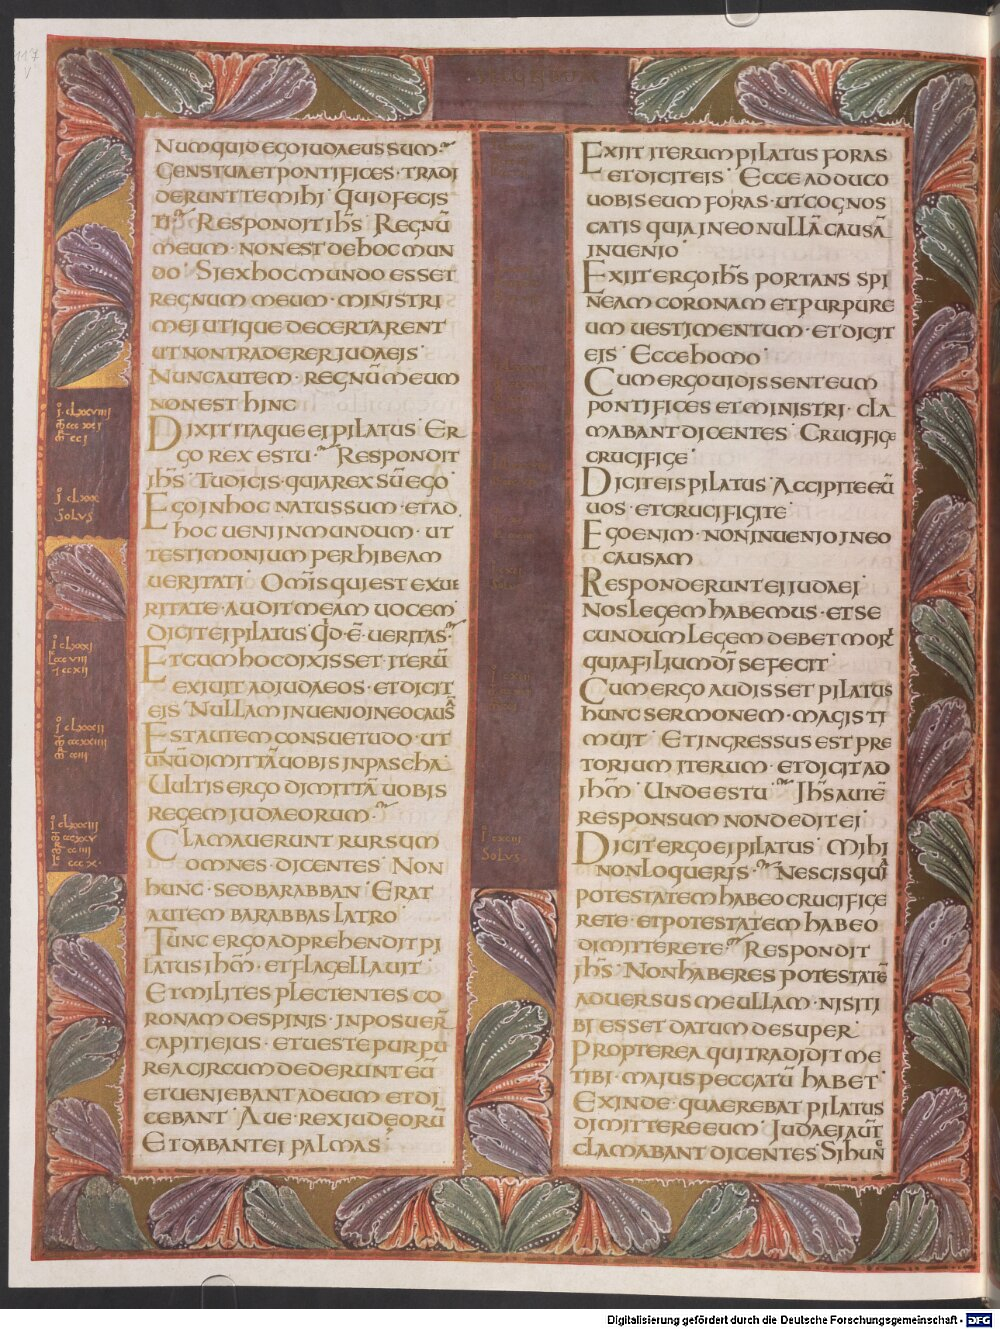 117
V
NUMQUID EGO IUDAEUS SUM
GENS TUA ET PONTIFICES · TRADI
DERUNT TE MIHI · QUID FECIS
TI RESPONDIT IHS REGNŪ
MEUM · NON EST DE HOC MUN
DO · SI EX HOC MUNDO ESSET
REGNUM MEUM · MINISTRI
MEI UTIQUE DECERTARENT
UT NON TRADERER IUDAEIS
NUNC AUTEM · REGNŪ MEUM
NON EST HINC
DIXIT ITAQUE EI PILATUS ER
GO REX ES TU RESPONDIT
IHS TU DICIS · QUIA REX SŪ EGO
EGO IN HOC NATUS SUM · ET AD
HOC UENI IN MUNDUM · UT
TESTIMONIUM PERHIBEAM
UERITATI OMIS QUI EST EX UE
RITATE · AUDIT MEAM UOCEM
DICIT EI PILATUS QD · Ē · UERITAS
ET CUM HOC DIXISSET · ITERŪ
EXIUIT AD IUDAEOS · ET DICIT
EIS NULLAM INUENIO IN EO CAUSĀ
EST AUTEM CONSUETUDO · UT
UNŪ DIMITTĀ UOBIS IN PASCHA
UULTIS ERGO DIMITTĀ UOBIS
REGEM IUDAEORUM
CLAMAUERUNT RURSUM
OMNES DICENTES NON
HUNC · SED BARABBAN ERAT
AUTEM BARABBAS LATRO
TUNC ERGO ADPREHENDIT PI
LATUS IHM · ET FLAGELLAUIT
ET MILITES PLECTENTES CO
RONAM DE SPINIS · INPOSUER
CAPITI EIUS · ET UESTE PURPU
REA CIRCUMDEDERUNT EŪ
ET UENIEBANT AD EUM ET DI
CEBANT AUE · REX IUDEORŪ
ET DABANT EI PALMAS
EXIIT ITERUM PILATUS FORAS
ET DICIT EIS ECCE ADDUCO
UOBIS EUM FORAS · UT COGNOS
CATIS QUIA IN EO NULLĀ CAUSĀ
INUENIO
EXIIT ERGO IHS PORTANS SPI
NEAM CORONAM ET PURPURE
UM UESTIMENTUM · ET DICIT
EIS ECCE HOMO
CUM ERGO UIDISSENT EUM
PONTIFICES ET MINISTRI · CLA
MABANT DICENTES CRUCIFIGE
CRUCIFIGE
DICIT EIS PILATUS ACCIPITE EŪ
UOS · ET CRUCIFIGITE
EGO ENIM · NON INUENIO IN EO
CAUSAM
RESPONDERUNT EI IUDAEI
NOS LEGEM HABEMUS · ET SE
CUNDUM LEGEM DEBET MORI
QUIA FILIUM DI SE FECIT
CUM ERGO AUDISSET PILATUS
HUNC SERMONEM · MAGIS TI
MUIT ET INGRESSUS EST PRE
TORIUM ITERUM · ET DICIT AD
IHM UNDE ES TU IHS AUTĒ
RESPONSUM NON DEDIT EI
DICIT ERGO EI PILATUS MIHI
NON LOQUERIS · NESCIS QUIA
POTESTATEM HABEO CRUCIFIGE
RE TE · ET POTESTATEM HABEO
DIMITTERE TE RESPONDIT
IHS NON HABERES POTESTATĒ
ADUERSUS ME ULLAM · NISI TI
BI ESSET DATUM DESUPER
PROPTEREA QUI TRADIDIT ME
TIBI · MAIUS PECCATŪ HABET
EXINDE · QUAEREBAT PILATUS
DIMITTERE EUM IUDAEI AUT
CLAMABANT DICENTES SI HUNC
Digitalisierung gefördert durch die Deutsche Forschungsgemeinschaft - DFG